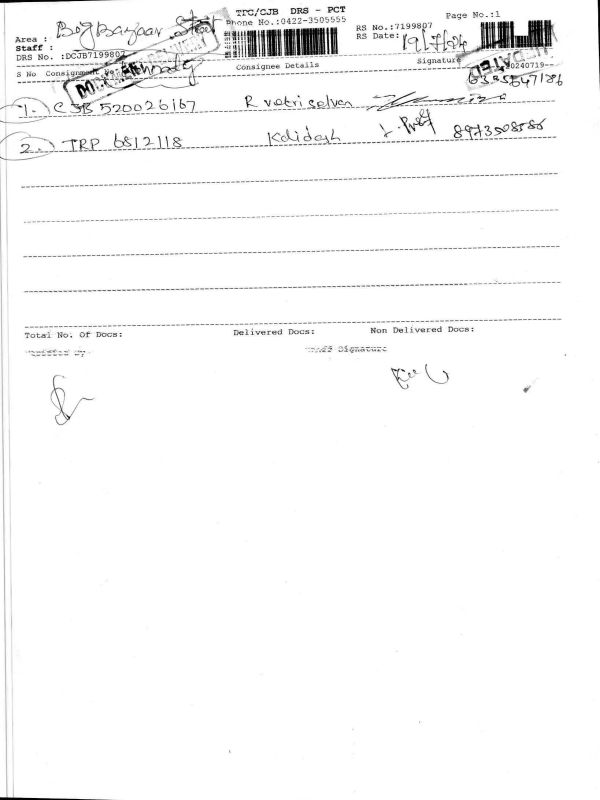 TPC/CJB DRS - PCT
Page No.:1
Phone No.:0422-3505555
Area : Big Bazaar Street
RS No.:7199807
Staff :
RS Date: 19/7/24
DRS No. :DCJB7199807
S No Consignment
Consignee Details
Signature
90240719--
1. CJB 520026167 R vetriselvan
2. TRP 6812118 Kalidash 8973508588
Total No. Of Docs: Delivered Docs: Non Delivered Docs:
Signature